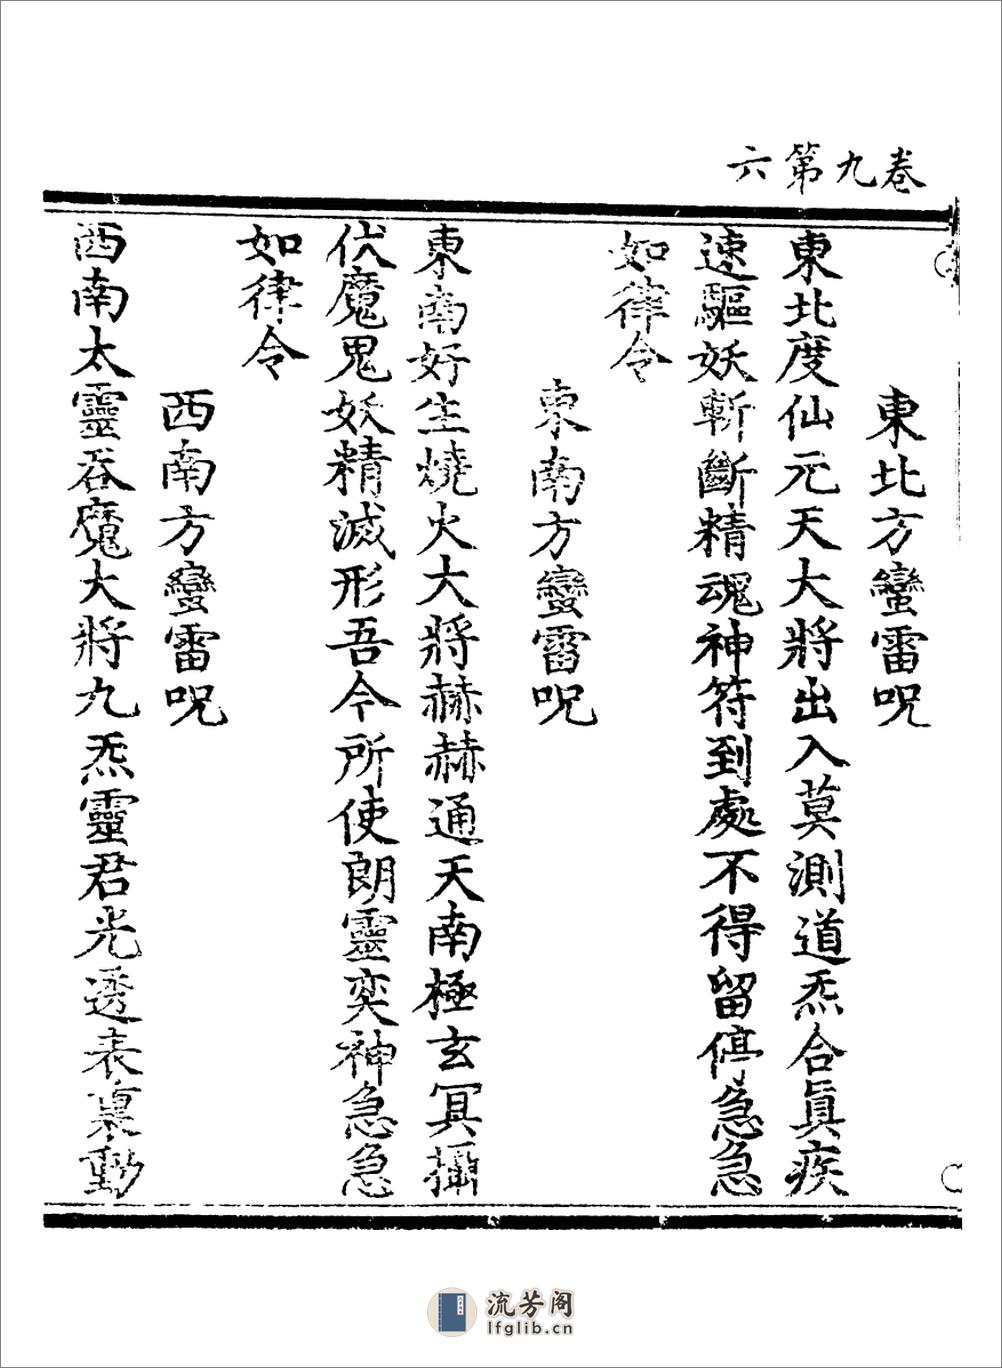 六第九卷
東北方蠻雷呪
東北度仙元天大將出入莫測道炁合眞疾
速驅妖斬斷精魂神符到處不得留停急急
如律令
東南方蠻雷呪
東南好生燒火大將赫赫通天南極玄冥攝
伏魔鬼妖精滅形吾今所使朗靈奕神急急
如律令
西南方蠻雷呪
西南太靈吞魔大將九炁靈君光透表裏動
流芳阁
lfglib.cn